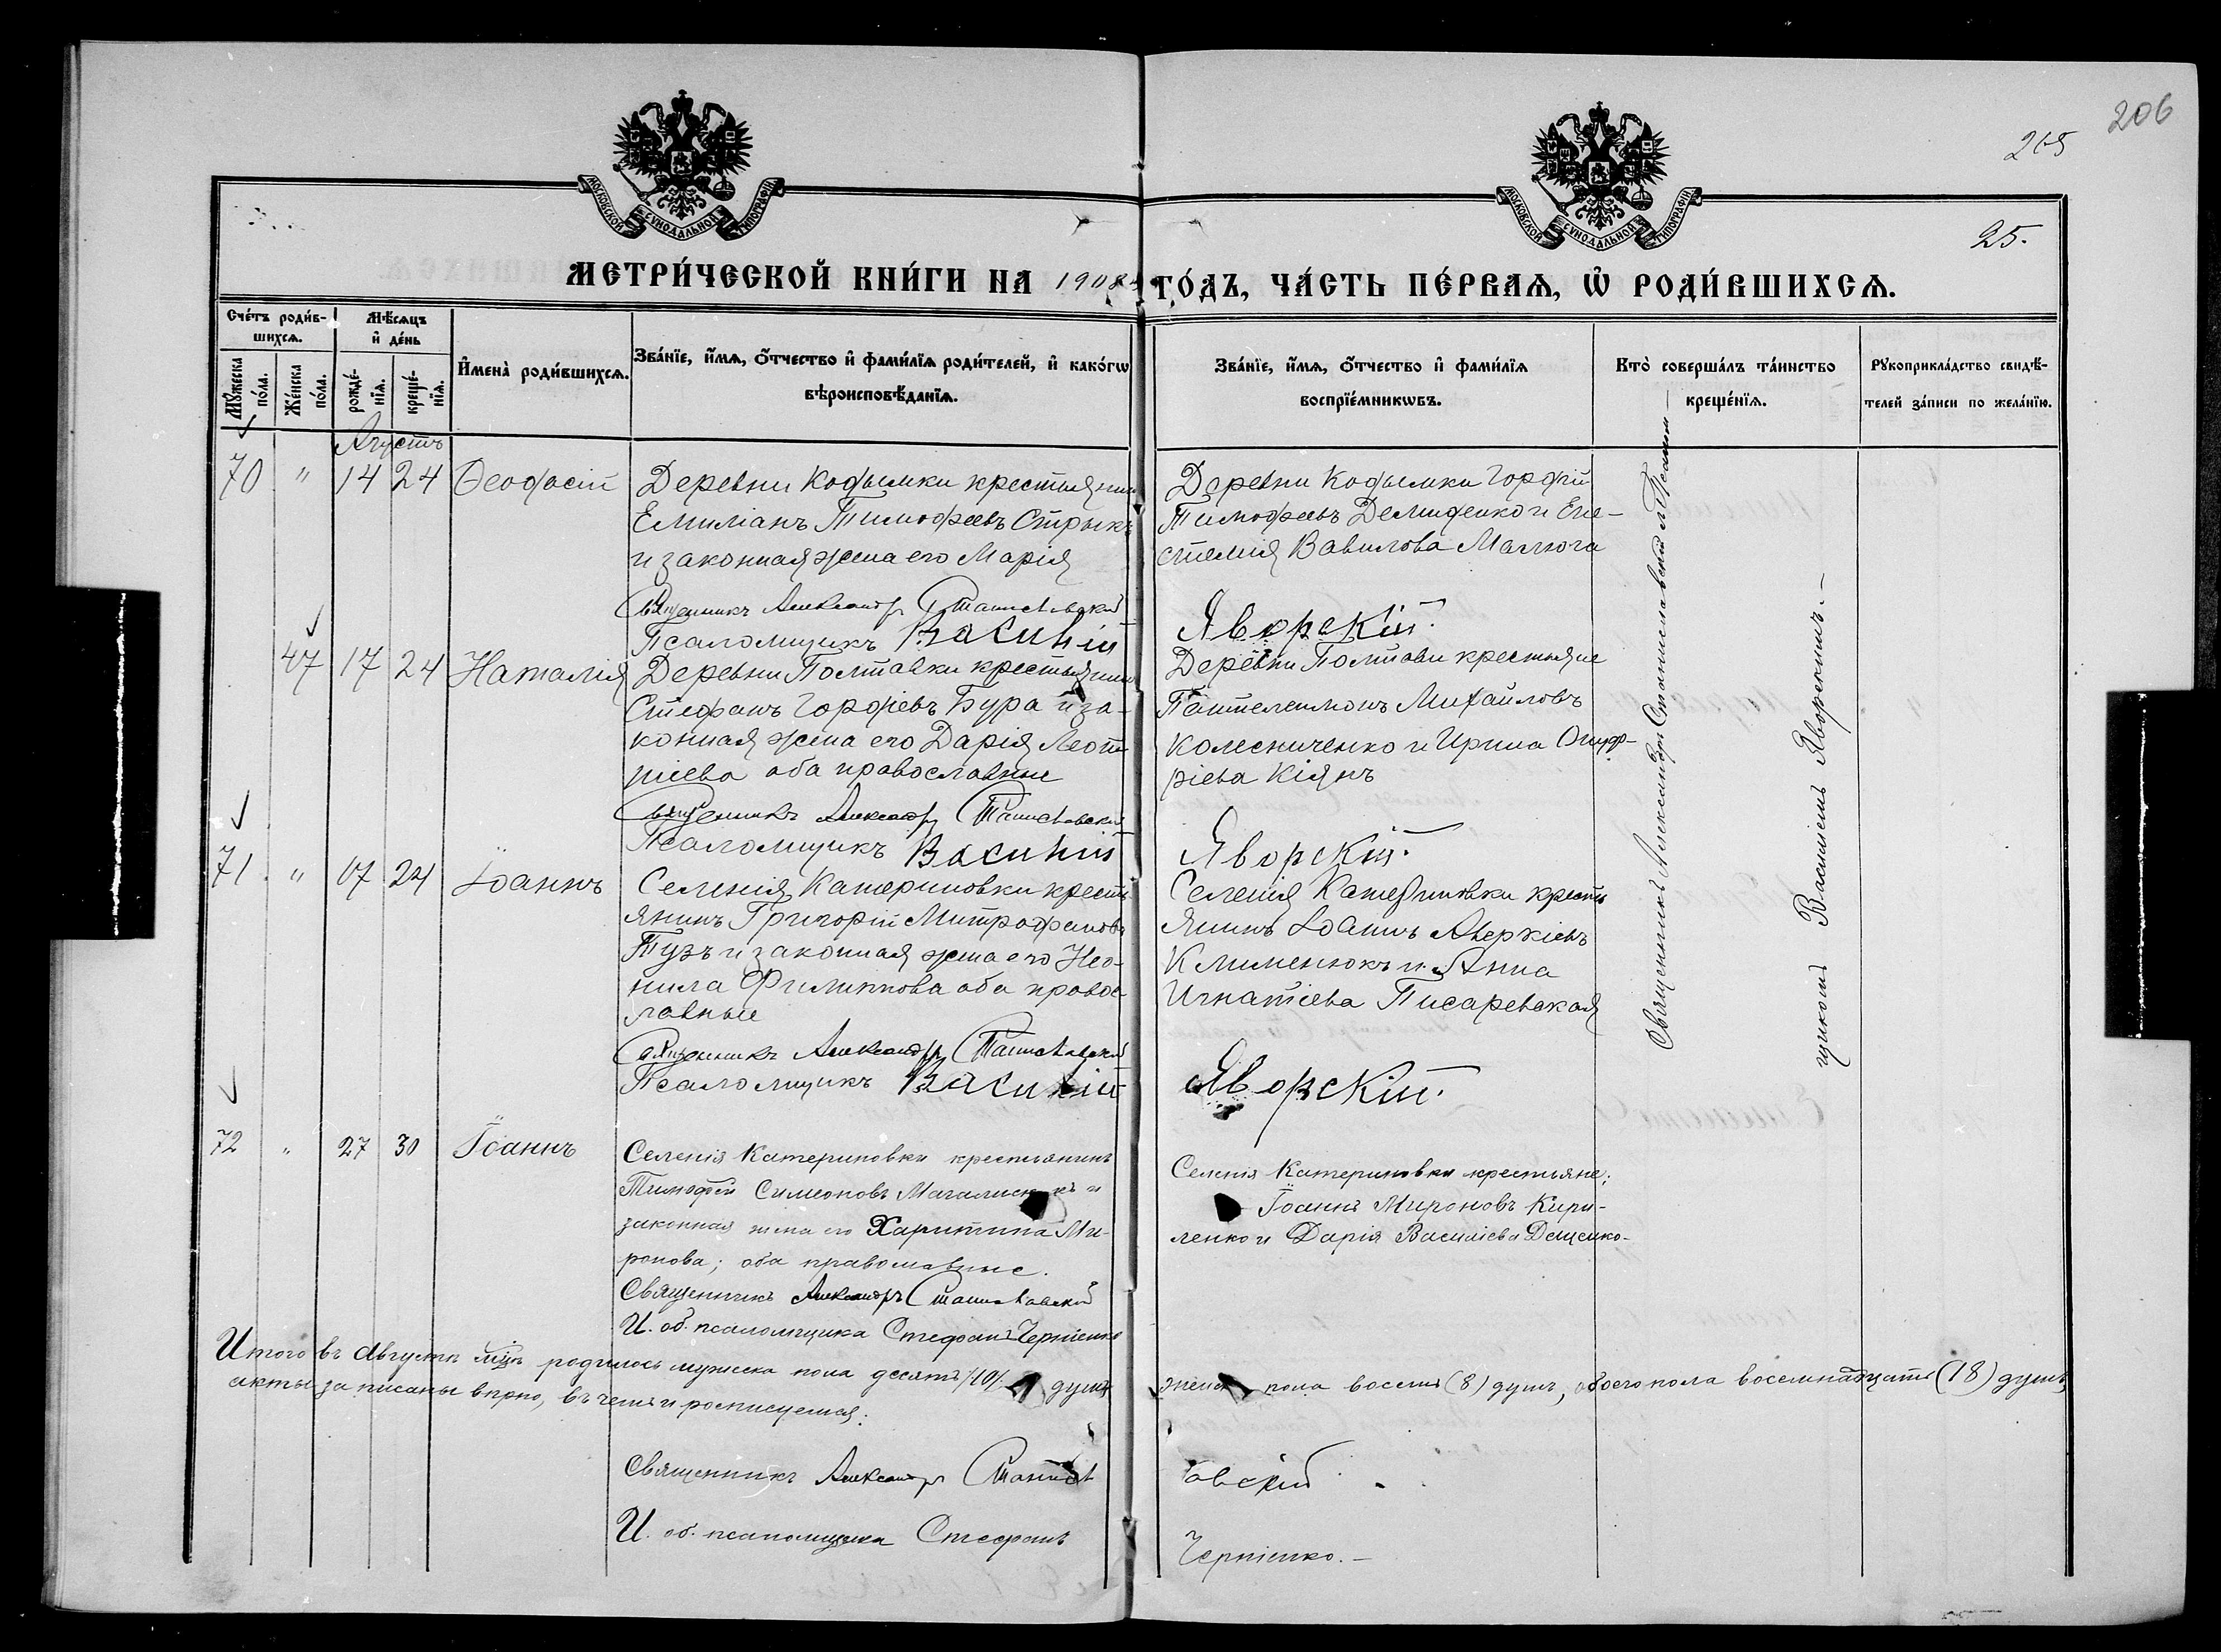 206
205
25.
МОСКОВСКОЙ СУНОДАЛЬНОЙ ТИПОГРАФІИ
МОСКОВСКОЙ СУНОДАЛЬНОЙ ТИПОГРАФІИ
МЕТРИ́ЧЕСКОЙ КНИ́ГИ НА 1908 ГО́ДЪ, ЧА́СТЬ ПЕ́РВАѦ, Ѡ РОДИ́ВШИХСѦ.
Сче́тъ роди́в-
шихсѧ.
Мѣ́сѧцъ
и҆ де́нь
Мꙋ́жеска по́ла.
Же́нска по́ла.
рожде́-нїѧ.
креще́-нїѧ.
И҆мена̀ роди́вшихсѧ.
Зва́нїе, и҆́мѧ, ѻ҆́тчество и҆ фами́лїѧ роди́телей, и҆ како́гѡ
вѣроисповѣ́данїѧ.
Зва́нїе, и҆́мѧ, ѻ҆́тчество и҆ фами́лїѧ
воспрїе́мникѡвъ.
Кто̀ соверша́лъ та́инство
креще́нїѧ.
Рꙋкоприкла́дство свидѣ́-
телей за́писи по жела́нїю.
Августъ
70 " 14 24 Ѳеодосій
Деревни Кодымки крестьянинъ
Емиліанъ Тимофеевъ Стрыкъ
и законная жена его Марія
Священникъ Александръ Станиславскій
Псаломщикъ Василій
Деревни Кодымки Гордій
Тимофеевъ Демиденко и Епи-
стимія Вавилова Малюга
Яворскій.
47 17 24 Наталія
Деревни Полтавки крестьянинъ
Стефанъ Гордіевъ Бура и за-
конная жена его Дарія Леон-
тіева оба православные
Священникъ Александръ Станиславскій
Псаломщикъ Василій
Деревни Полтавки крестьяне
Пантелеимонъ Михайловъ
Колесниченко и Ирина Онуф-
ріева Кіянъ
Яворскій.
71 " 17 24 Іоаннъ
Селенія Катериновки кресть-
янинъ Григорій Митрофановъ
Тузъ и законная жена его Нео-
нила Филиппова оба правос-
лавные
Священникъ Александръ Станиславскій
Псаломщикъ Василій
Селенія Катериновки кресть-
янинъ Іоаннъ Аверкіевъ
Клименюкъ и Анна
Игнатіева Писаревская
Яворскій.
72 " 27 30 Іоаннъ
Селенія Катериновки крестьянинъ
Тимофей Симеоновъ и
законная жена его Харитина Ми-
ронова; оба православные.
Священникъ Александръ Станиславскій
И. об. псаломщика Стефанъ Черніенко
Селенія Катериновки крестьяне:
Іоаннъ Мироновъ Кири-
ленко и Дарія Василіева Деценко.
Священникъ Александръ Станиславскій и Псаломщикомъ Василіемъ Яворскимъ.
Итого въ Августѣ мцѣ родилось мужеска пола десять (10) душъ женска пола восемь (8) душъ, обоего пола восемнадцать (18) душъ,
акты записаны вѣрно, въ чемъ и росписуемся:
Священникъ Александръ Станиславскій
И. об. псаломщика Стефанъ Черніенко.